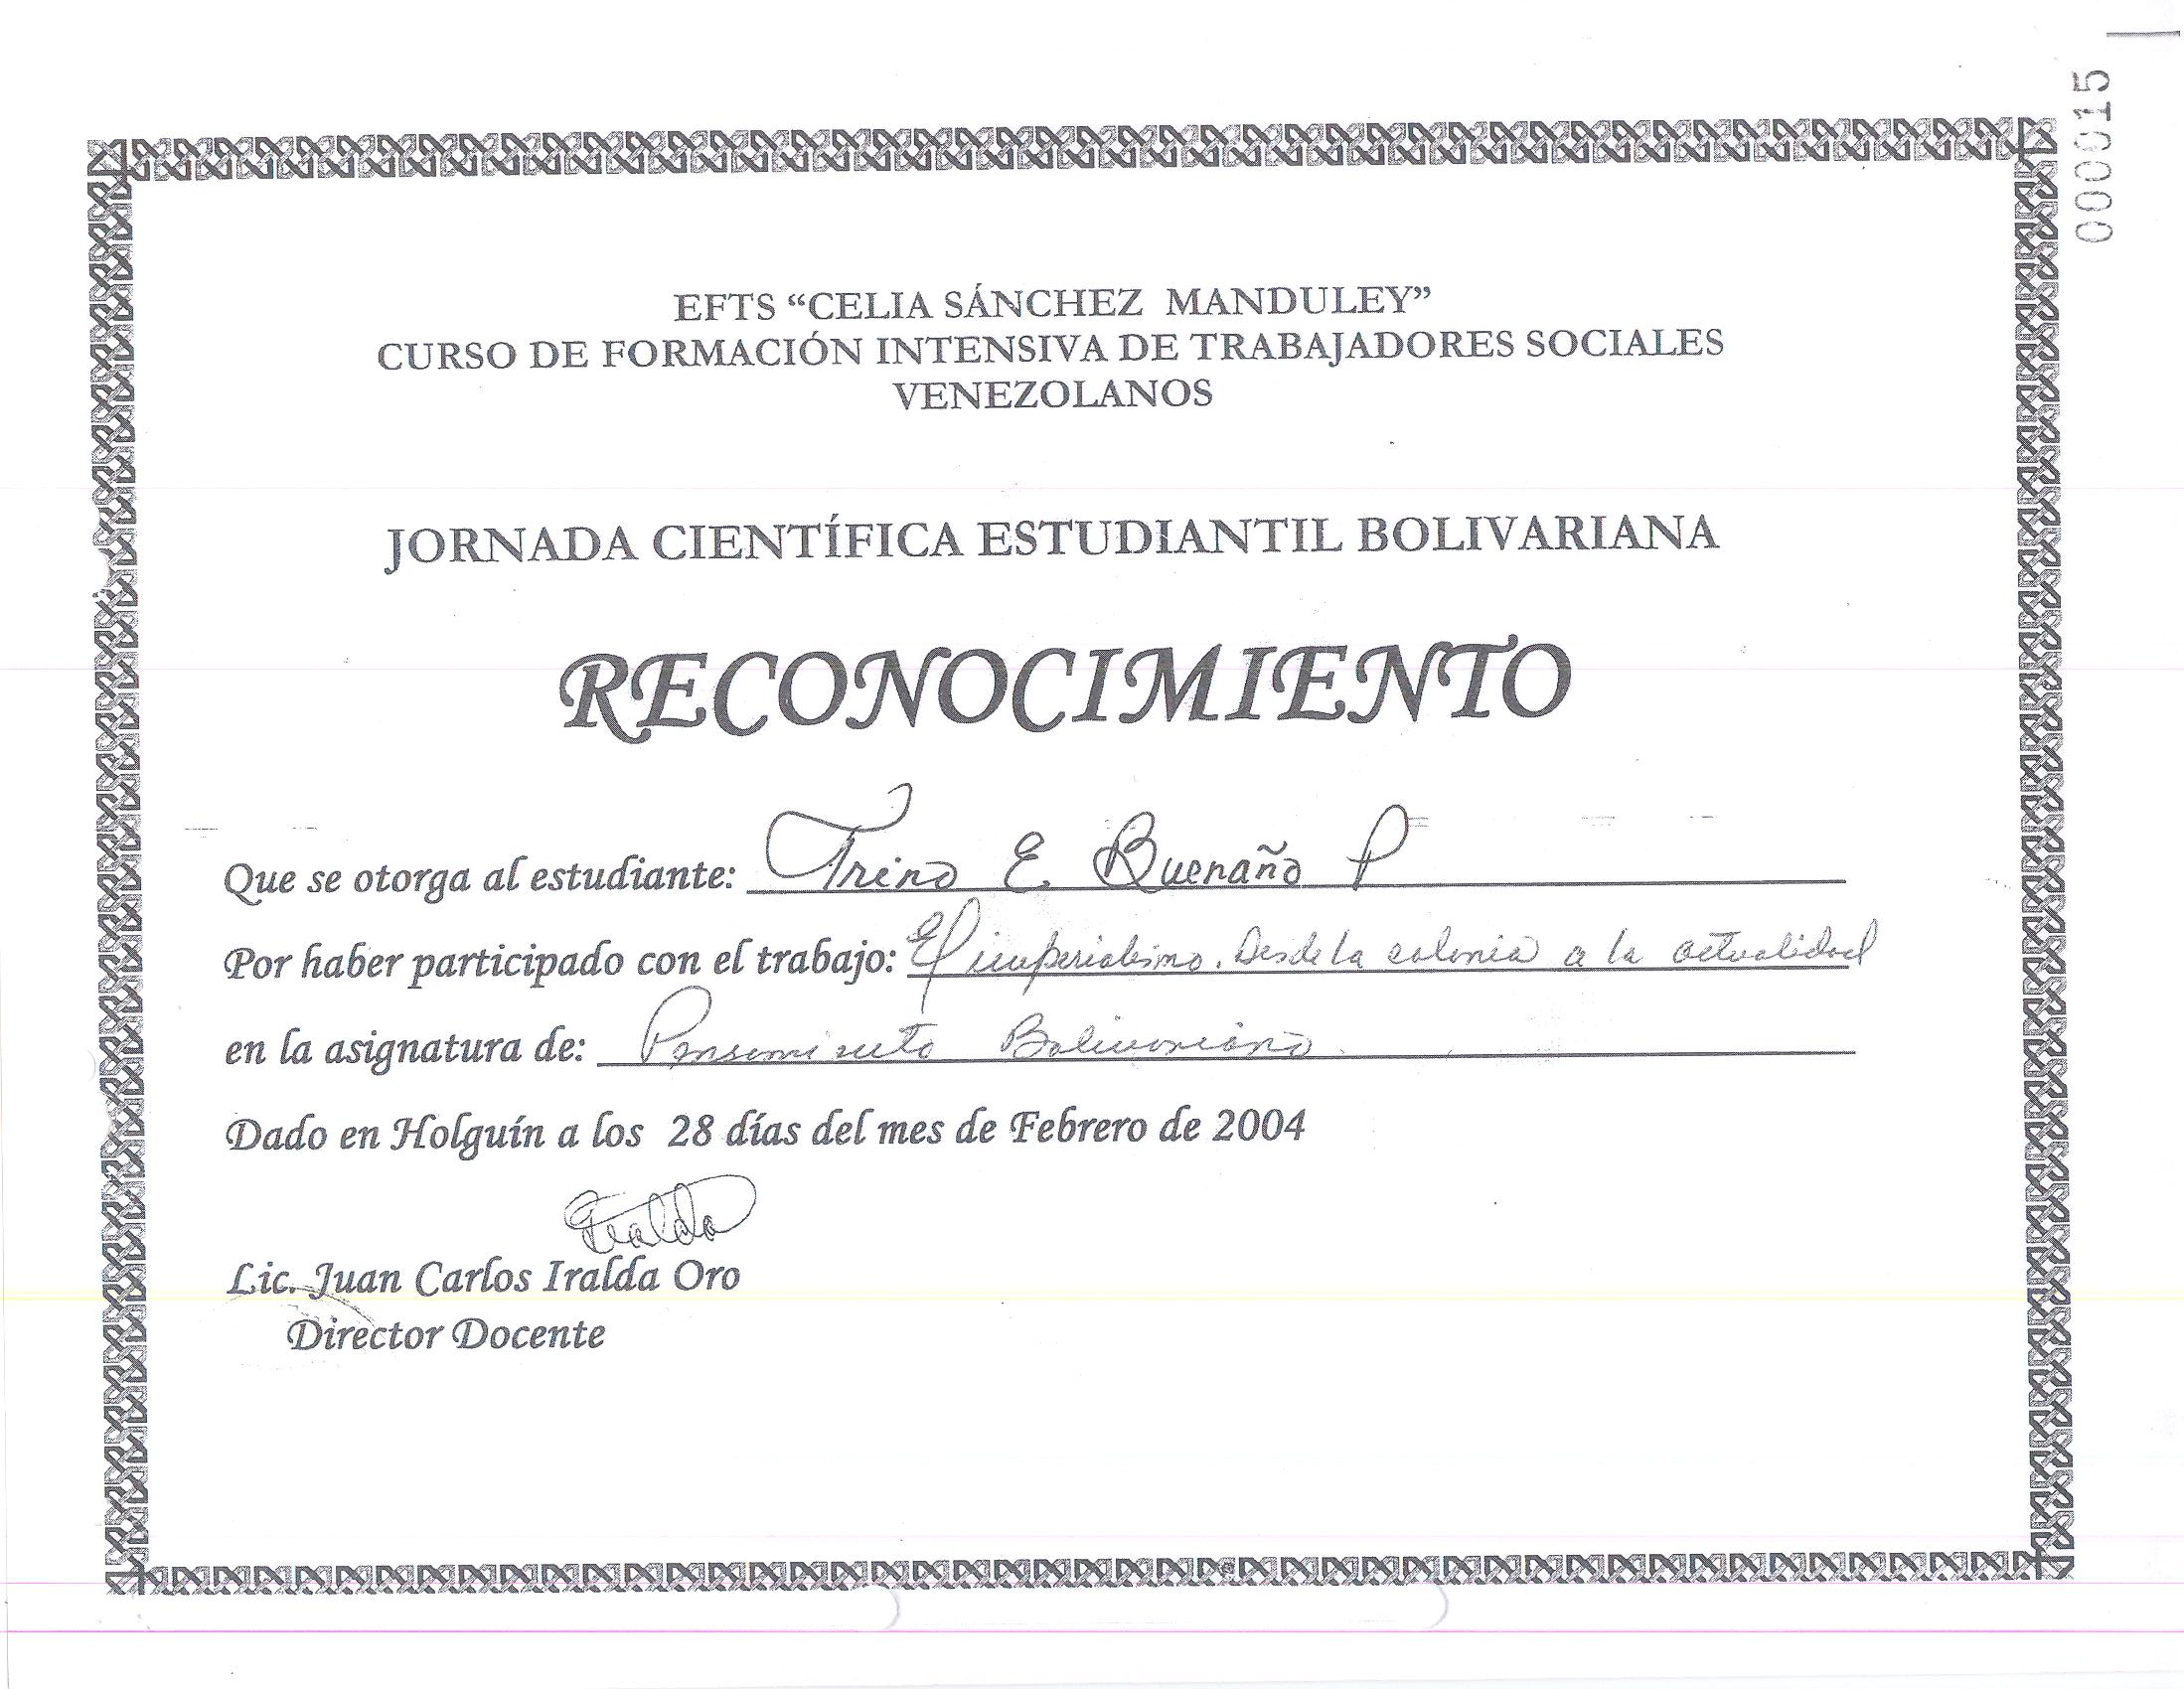 000015
EFTS “CELIA SÁNCHEZ MANDULEY”
CURSO DE FORMACIÓN INTENSIVA DE TRABAJADORES SOCIALES
VENEZOLANOS
JORNADA CIENTÍFICA ESTUDIANTIL BOLIVARIANA
RECONOCIMIENTO
Que se otorga al estudiante: Trino E. Buenaño P
Por haber participado con el trabajo: El imperialismo. Desde la colonia a la actualidad
en la asignatura de: Pensamiento Bolivariano.
Dado en Holguín a los 28 días del mes de Febrero de 2004
Iralda
Lic. Juan Carlos Iralda Oro
Director Docente